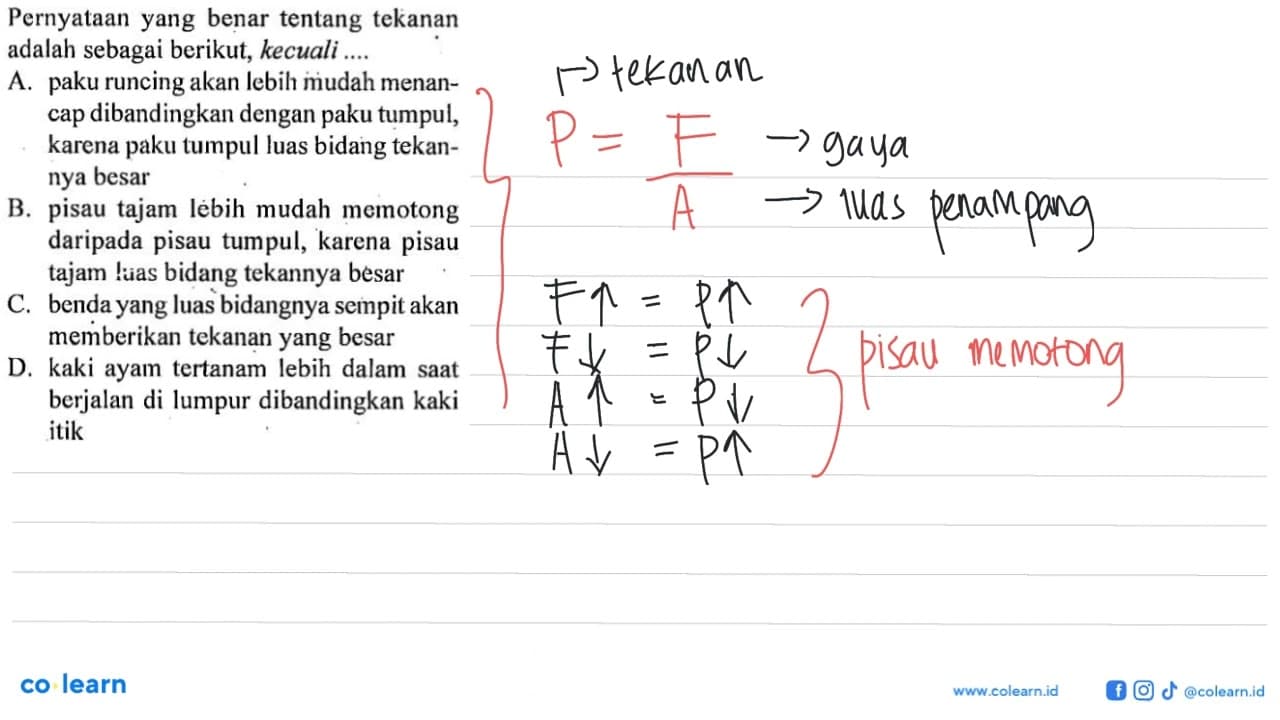 Pernyataan yang benar tentang tekanan
adalah sebagai berikut, kecuali ....
A. paku runcing akan lebih mudah menan-
cap dibandingkan dengan paku tumpul,
karena paku tumpul luas bidang tekan-
nya besar
B. pisau tajam lebih mudah memotong
daripada pisau tumpul, karena pisau
tajam luas bidang tekannya besar
C. benda yang luas bidangnya sempit akan
memberikan tekanan yang besar
D. kaki ayam tertanam lebih dalam saat
berjalan di lumpur dibandingkan kaki
itik
→ tekanan
P = F → gaya
A → luas penampang
F↑ = P↑
F↓ = P↓
A↑ = P↓
A↓ = P↑
pisau memotong
co learn
www.colearn.id
@colearn.id